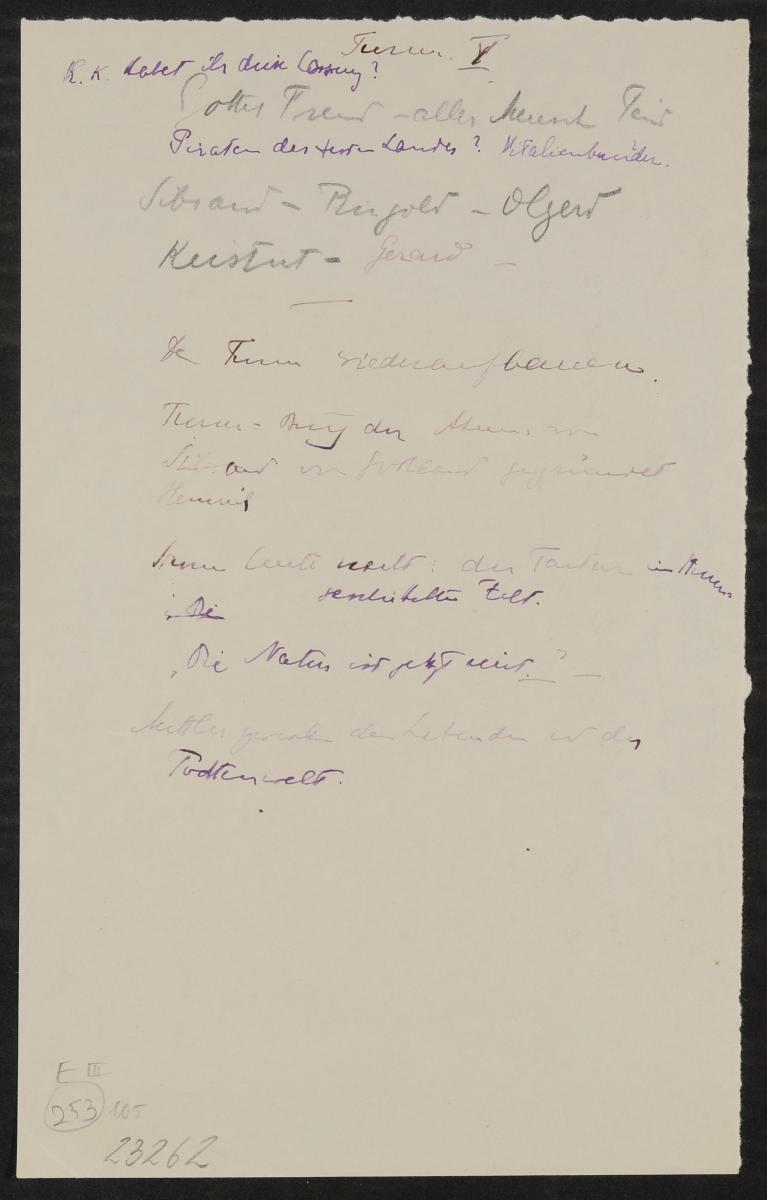 Turm. V
K. K. Habet ihr diese Losung?
Gottes Freund – aller Mensch Feind
Piraten des festen Landes? Vitalienbrüder.
Sibrand – Ringold – Olgerd
Keistut – Gerard –
Den Turm wiederaufbauen.
Turm = Burg der
Sibrand von Gotland gegründet
Leute der Tartar im
geschütteltes Zelt.
„Die
„Die Natur ist jetzt mit."? –
Mittler zwischen den Lebenden und der
Todtenwelt.
E III
253 105
23262